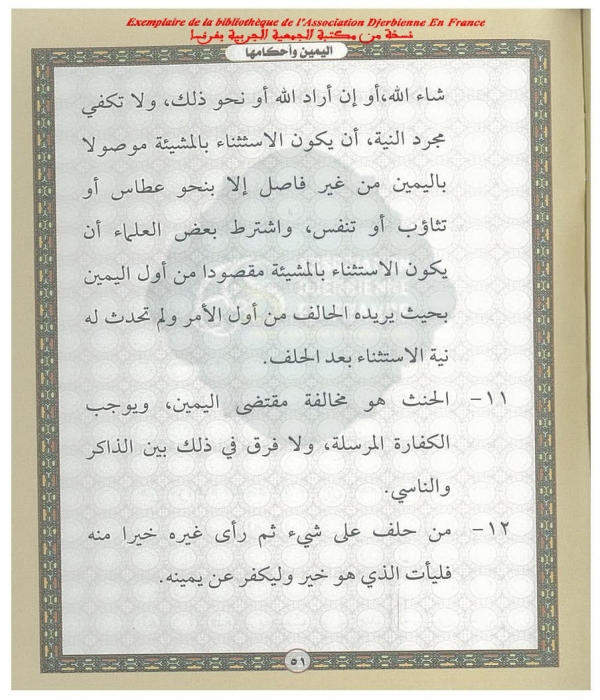 Exemplaire de la bibliothèque de l'Association Djerbienne En France
نسخة من مكتبة الجمعية الجربية بفرنسا
اليمين وأحكامها
شاء الله،أو إن أراد الله أو نحو ذلك، ولا تكفي
مجرد النية، أن يكون الاستثناء بالمشيئة موصولا
باليمين من غير فاصل إلا بنحو عطاس أو
تثاؤب أو تنفس، واشترط بعض العلماء أن
يكون الاستثناء بالمشيئة مقصودا من أول اليمين
بحيث يريده الحالف من أول الأمر ولم تحدث له
نية الاستثناء بعد الحلف.
١١- الحنث هو مخالفة مقتضى اليمين، ويوجب
الكفارة المرسلة، ولا فرق في ذلك بين الذاكر
والناسي.
١٢- من حلف على شيء ثم رأى غيره خيرا منه
فليأت الذي هو خير وليكفر عن يمينه.
٥١